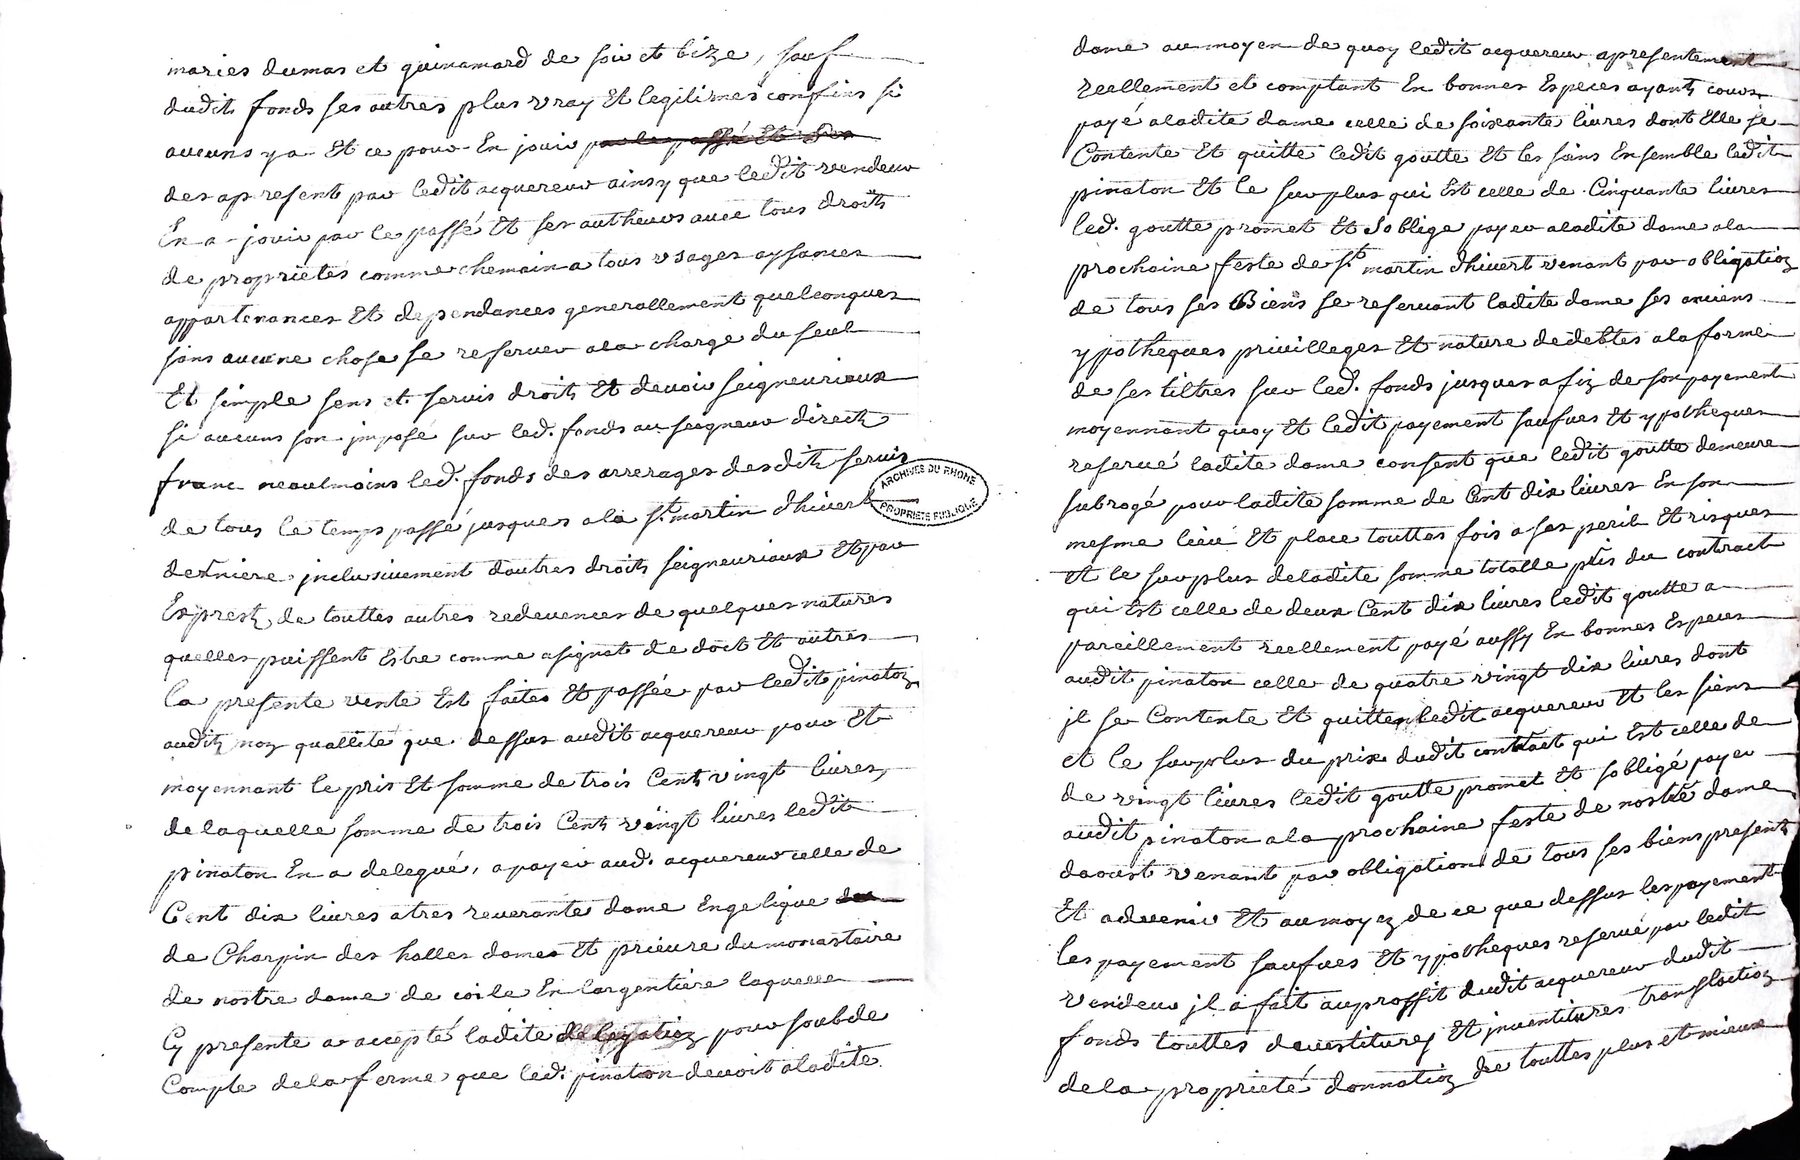 maries dumas et guinamard de soir et bize, sauf
dudit fonds ses autres plus vray Et legitimes confins si
aucuns y a Et ce pour En jouir par le passé Et ses
des apresent par ledit acquereur ainsy que ledit vendeur
En a jouir par le passé Et ses autheurs avec tous droits
de proprietés comme chemain a tous usages aysances
appartenances Et dependances generallement quelconques
sans aucune chose se reserver ala charge du seul
Et simple sens et servis droits Et devoir seigneuriaux
si aucuns son jmposé sur led. fonds au seigneur direct
franc neaulmoins led. fonds des arrerages desdits servis
de tous le temps passé jusques a la st. martin dhivert
derniere jnclusivement dautres droits seigneuriaux Et par
Exprest de touttes autres redevences de quelques natures
quelles puissent Estre comme asignat de doct Et autres
la presente vente Est faites Et passée par ledit pinaton
audit noz quallité que dessus audit acquereur pour Et
moyennant le pris Et somme de trois Cent vingt livres,
de laquelle somme de trois Cent vingt livres ledit
pinaton En a delegué, a payer aud. acquereur celle de
Cent dix livres a tres reverante dame Engelique
de Charpin des halles dames Et prieure du monastaire
de nostre dame de coile En largentiere laquelle
Cy presente a accepté ladite delegation pour soubde
Compte de la ferme que led. pinaton devoit a ladite
ARCHIVES DU RHONE
PROPRIETE PUBLIQUE
dame au moyen de quoy ledit acquereur apresentement
reellement et comptant En bonnes Especes ayant cours
payé aladite dame celle de soixante livres dont Elle se
Contente Et quitte ledit goutte Et les siens Ensemble ledit
pinaton Et le surplus qui Est celle de Cinquante livres
led. goutte promet Et Soblige payer aladite dame ala
prochaine feste de St. martin dhivert venant par obligation
de tous ses Biens se reservant ladite dame ses anciens
ypotheques privilleges Et nature dedebtes ala forme
de ses tiltres sur led. fonds jusques a fiz de son payement
moyennant quoy Et ledit payement saufves Et ypotheques
reservé ladite dame consent que ledit goutte demeure
subrogé pour ladite somme de Cent dix livres En son
mesme lieu Et place touttes fois a ses peril Et risques
Et le surplus deladite somme totalle pris du contract
qui Est celle de deux Cent dix livres ledit goutte a
pareillement reellement payé aussy En bonnes Especes
audit pinaton celle de quatre vingt dix livres dont
jl se Contente Et quitte ledit acquereur Et les siens
et le surplus du prix dudit contract qui Est celle de
de vingt livres ledit goutte promet Et sobligé payer
audit pinaton a la prochaine feste de nostre dame
daoust venant par obligation de tous ses biens present
Et advenir Et au moyez de ce que dessus les payement
les payement saufves Et ypotheques reservé par ledit
vendeur jl a fait au proffit dudit acquereur dudit
fonds touttes devestitures Et jnventitures translation
de la proprieté donnation de touttes plus et mieux